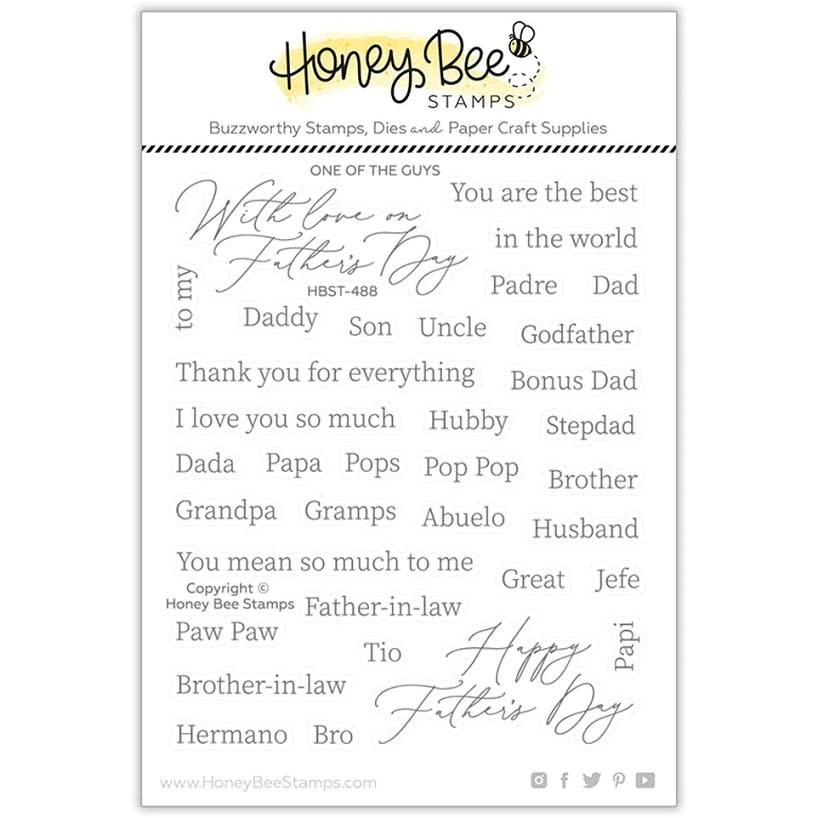 Honey Bee
STAMPS
Buzzworthy Stamps, Dies and Paper Craft Supplies
ONE OF THE GUYS
With love on
Father's Day
HBST-488
You are the best
in the world
to my
Padre Dad
Daddy Son Uncle Godfather
Thank you for everything Bonus Dad
I love you so much Hubby Stepdad
Dada Papa Pops Pop Pop Brother
Grandpa Gramps Abuelo Husband
You mean so much to me
Great Jefe
Copyright ©
Honey Bee Stamps
Father-in-law
Paw Paw
Tio
Papi
Happy
Father's Day
Brother-in-law
Hermano Bro
www.HoneyBeeStamps.com